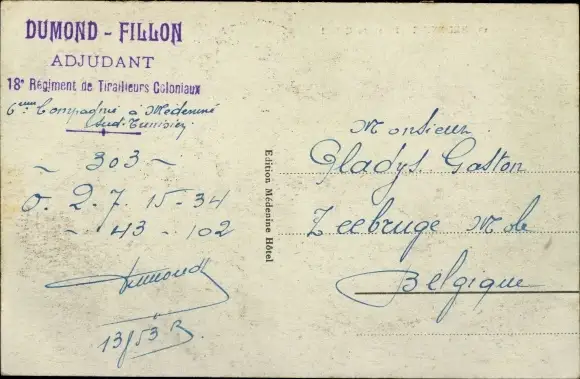 DUMOND - FILLON
ADJUDANT
18e Régiment de Tirailleurs Coloniaux
6eme Compagnie à Médenine
Sud-Tunisien
- 303 -
O. 2. 7. 15 - 34
- 43 - 102
Dumond
13/53 R
Edition Médenine Hôtel
Monsieur
Gladys Gaston
Zeebruge Mole
Belgique